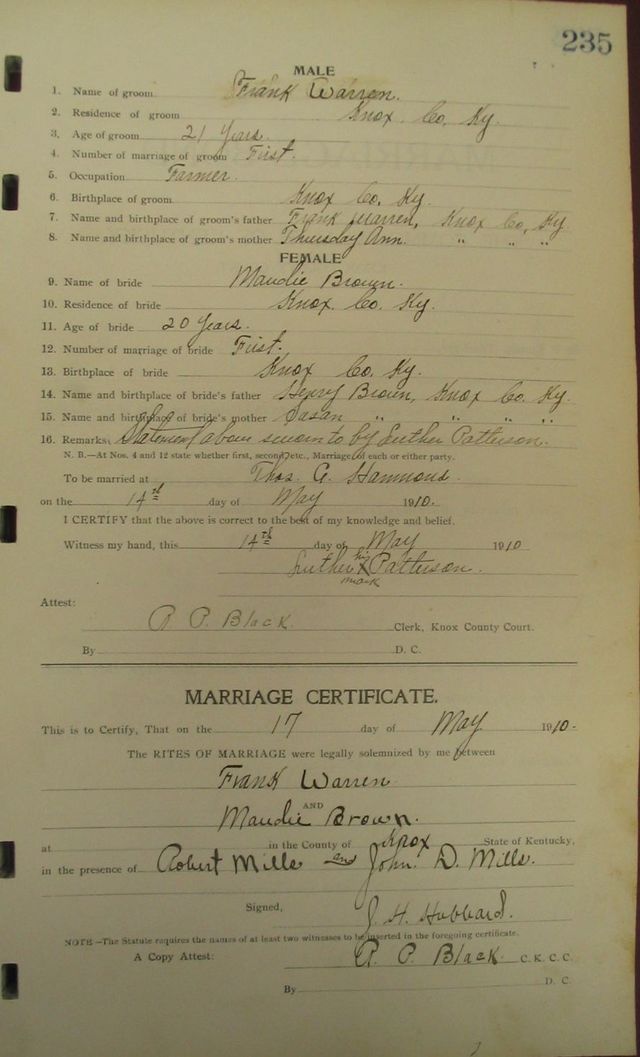 235
MALE
1. Name of groom Frank Warren.
2. Residence of groom Knox Co. Ky.
3. Age of groom 21 Years.
4. Number of marriage of groom First.
5. Occupation Farmer.
6. Birthplace of groom Knox Co. Ky.
7. Name and birthplace of groom's father Frank Warren, Knox Co, Ky.
8. Name and birthplace of groom's mother Thursday Ann. " " "
FEMALE
9. Name of bride Maudie Brown.
10. Residence of bride Knox Co. Ky.
11. Age of bride 20 Years.
12. Number of marriage of bride First.
13. Birthplace of bride Knox Co. Ky.
14. Name and birthplace of bride's father Henry Brown, Knox Co. Ky.
15. Name and birthplace of bride's mother Susan " " " "
16. Remarks: Statement above sworn to by Luther Patterson.
N. B.—At Nos. 4 and 12 state whether first, second, etc., Marriage of each or either party.
To be married at Thos. G. Hammons.
on the 14th day of May 1910.
I CERTIFY that the above is correct to the best of my knowledge and belief.
Witness my hand, this 14th day of May 1910
Luther his X Patterson.
mark
Attest:
P. P. Black Clerk, Knox County Court.
By D. C.
MARRIAGE CERTIFICATE.
This is to Certify, That on the 17 day of May 1910.
The RITES OF MARRIAGE were legally solemnized by me between
Frank Warren
AND
Maudie Brown.
at in the County of Knox State of Kentucky,
in the presence of Robert Mills and John D. Mills.
Signed, J. H. Hubbard.
NOTE—The Statute requires the names of at least two witnesses to be inserted in the foregoing certificate.
A Copy Attest: P. P. Black C. K. C. C.
By D. C.